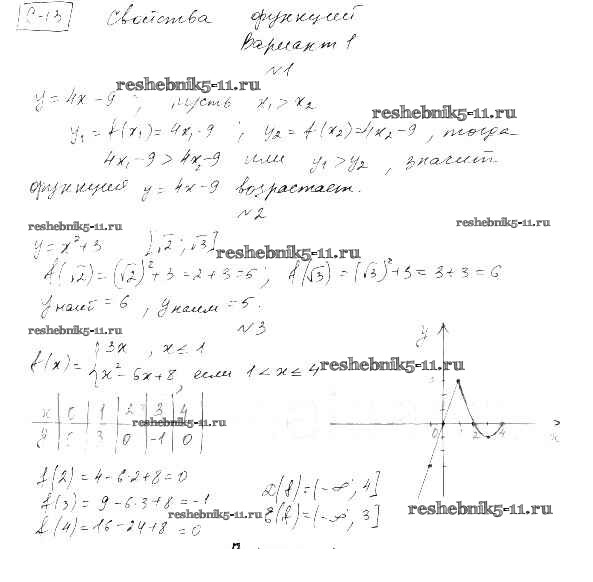 С-13 Свойства функций
Вариант 1
№1
reshebnik5-11.ru
y = 4x - 9 ; пусть x₁ > x₂
reshebnik5-11.ru
y₁ = f(x₁) = 4x₁ - 9 ; y₂ = f(x₂) = 4x₂ - 9 , тогда
4x₁ - 9 > 4x₂ - 9 или y₁ > y₂ , значит
функцией y = 4x - 9 возрастает.
№2
reshebnik5-11.ru reshebnik5-11.ru
y = x² + 3 [√2 ; √3]
reshebnik5-11.ru
f(√2) = (√2)² + 3 = 2 + 3 = 5 ; f(√3) = (√3)² + 3 = 3 + 3 = 6
y наиб = 6 , y наим = 5 .
reshebnik5-11.ru №3
f(x) = { 3x , x ≤ 1
x² - 6x + 8 , если 1 < x ≤ 4
reshebnik5-11.ru
x | 0 | 1 | 2 | 3 | 4
reshebnik5-11.ru
y | 0 | 3 | 0 | -1 | 0
y
0 2 4 x
f(2) = 4 - 6·2 + 8 = 0
f(3) = 9 - 6·3 + 8 = -1
f(4) = 16 - 24 + 8 = 0
D(f) = (-∞ ; 4]
E(f) = (-∞ ; 3]
reshebnik5-11.ru
reshebnik5-11.ru